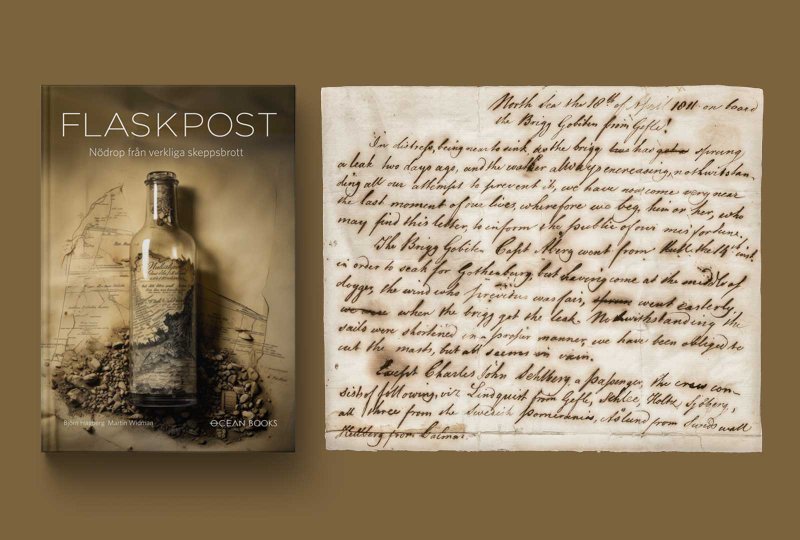 FLASKPOST
Nödrop från verkliga skeppsbrott
Björn Hagberg Martin Widman
OCEAN BOOKS
North Sea the 18th of April 1811 on board
the Brigg Gobiten from Gefle!
In distress, being near to sink, as the brigg has sprung
a leak two days ago, and the water always encreasing, nothwitstan-
ding all our attempts to prevent it, we have now come very near
the last moment of our lives, wherefore we beg him or her, who
may find this letter, to inform the publie of our misfortune.
The Brigg Gobiten Capt Åberg went from the 14 inst
in order to seak for Gothenburg, but having come at the middle of
dogger, the wind who previous was fair, went easterly,
when the brigg got the leak. Nothwithstanding the
sails were shortened in a proper manner, we have been obliged to
cut the masts, but all seems in vain.
Exept Charles John Sehlberg, a passenger, the crew con-
sists of following, viz Lindquist from Gefle, Schlee, Holtz, Sjöberg,
all three from the Swedish Pomerania, Åslund from Sundswall
Kullberg from Calmar.